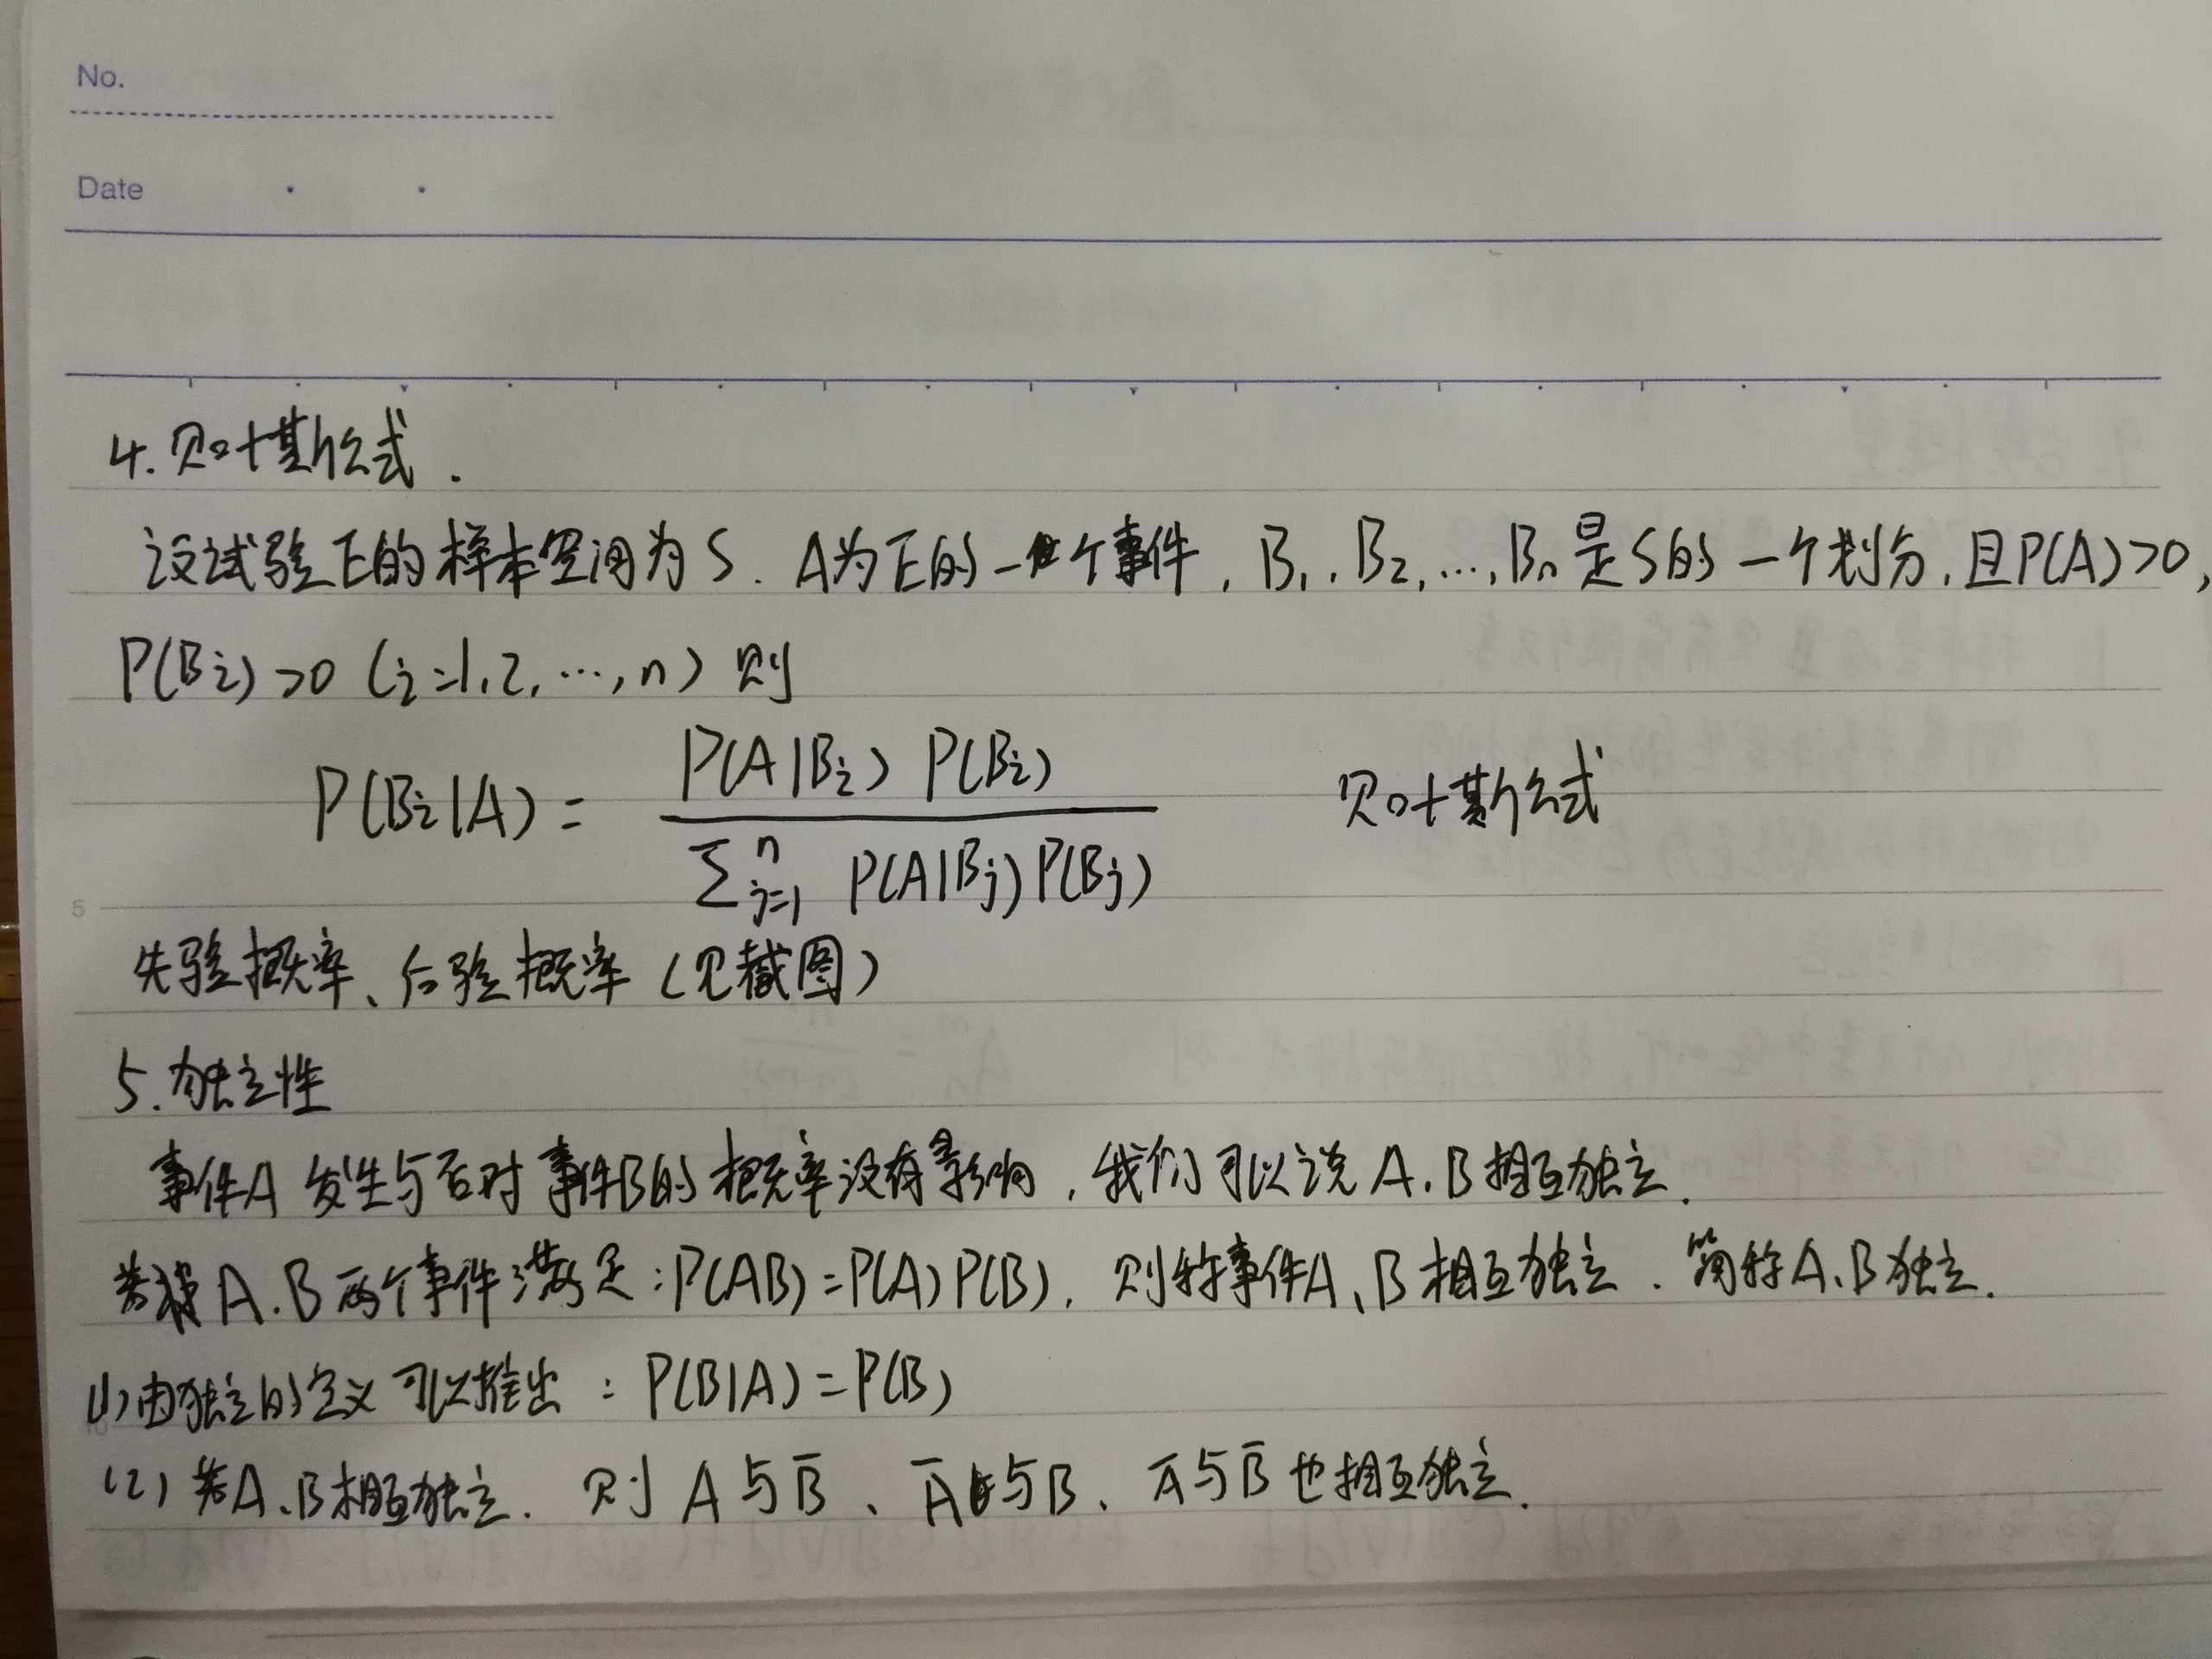 No.
Date
4. 贝叶斯公式.
设试验E的样本空间为S. A为E的一个事件, B₁, B₂, …, Bₙ是S的一个划分, 且P(A)>0,
P(Bi)>0 (i=1,2, …,n) 则
P(Bi|A) = \frac{P(A|Bi) P(Bi)}{\sum_{j=1}^{n} P(A|Bj)P(Bj)} 贝叶斯公式
5
先验概率、后验概率 (见截图)
5. 独立性
事件A 发生与否对 事件B的 概率没有影响, 我们可以说 A.B 相互独立.
若 A.B 两个事件满足: P(AB)=P(A)P(B), 则称事件A、B相互独立. 简称A、B独立.
(1) 由独立的定义 可以推出: P(B|A)=P(B)
10
(2) 若A、B相互独立. 则 A与B̅、A̅与B、A̅与B̅也相互独立.